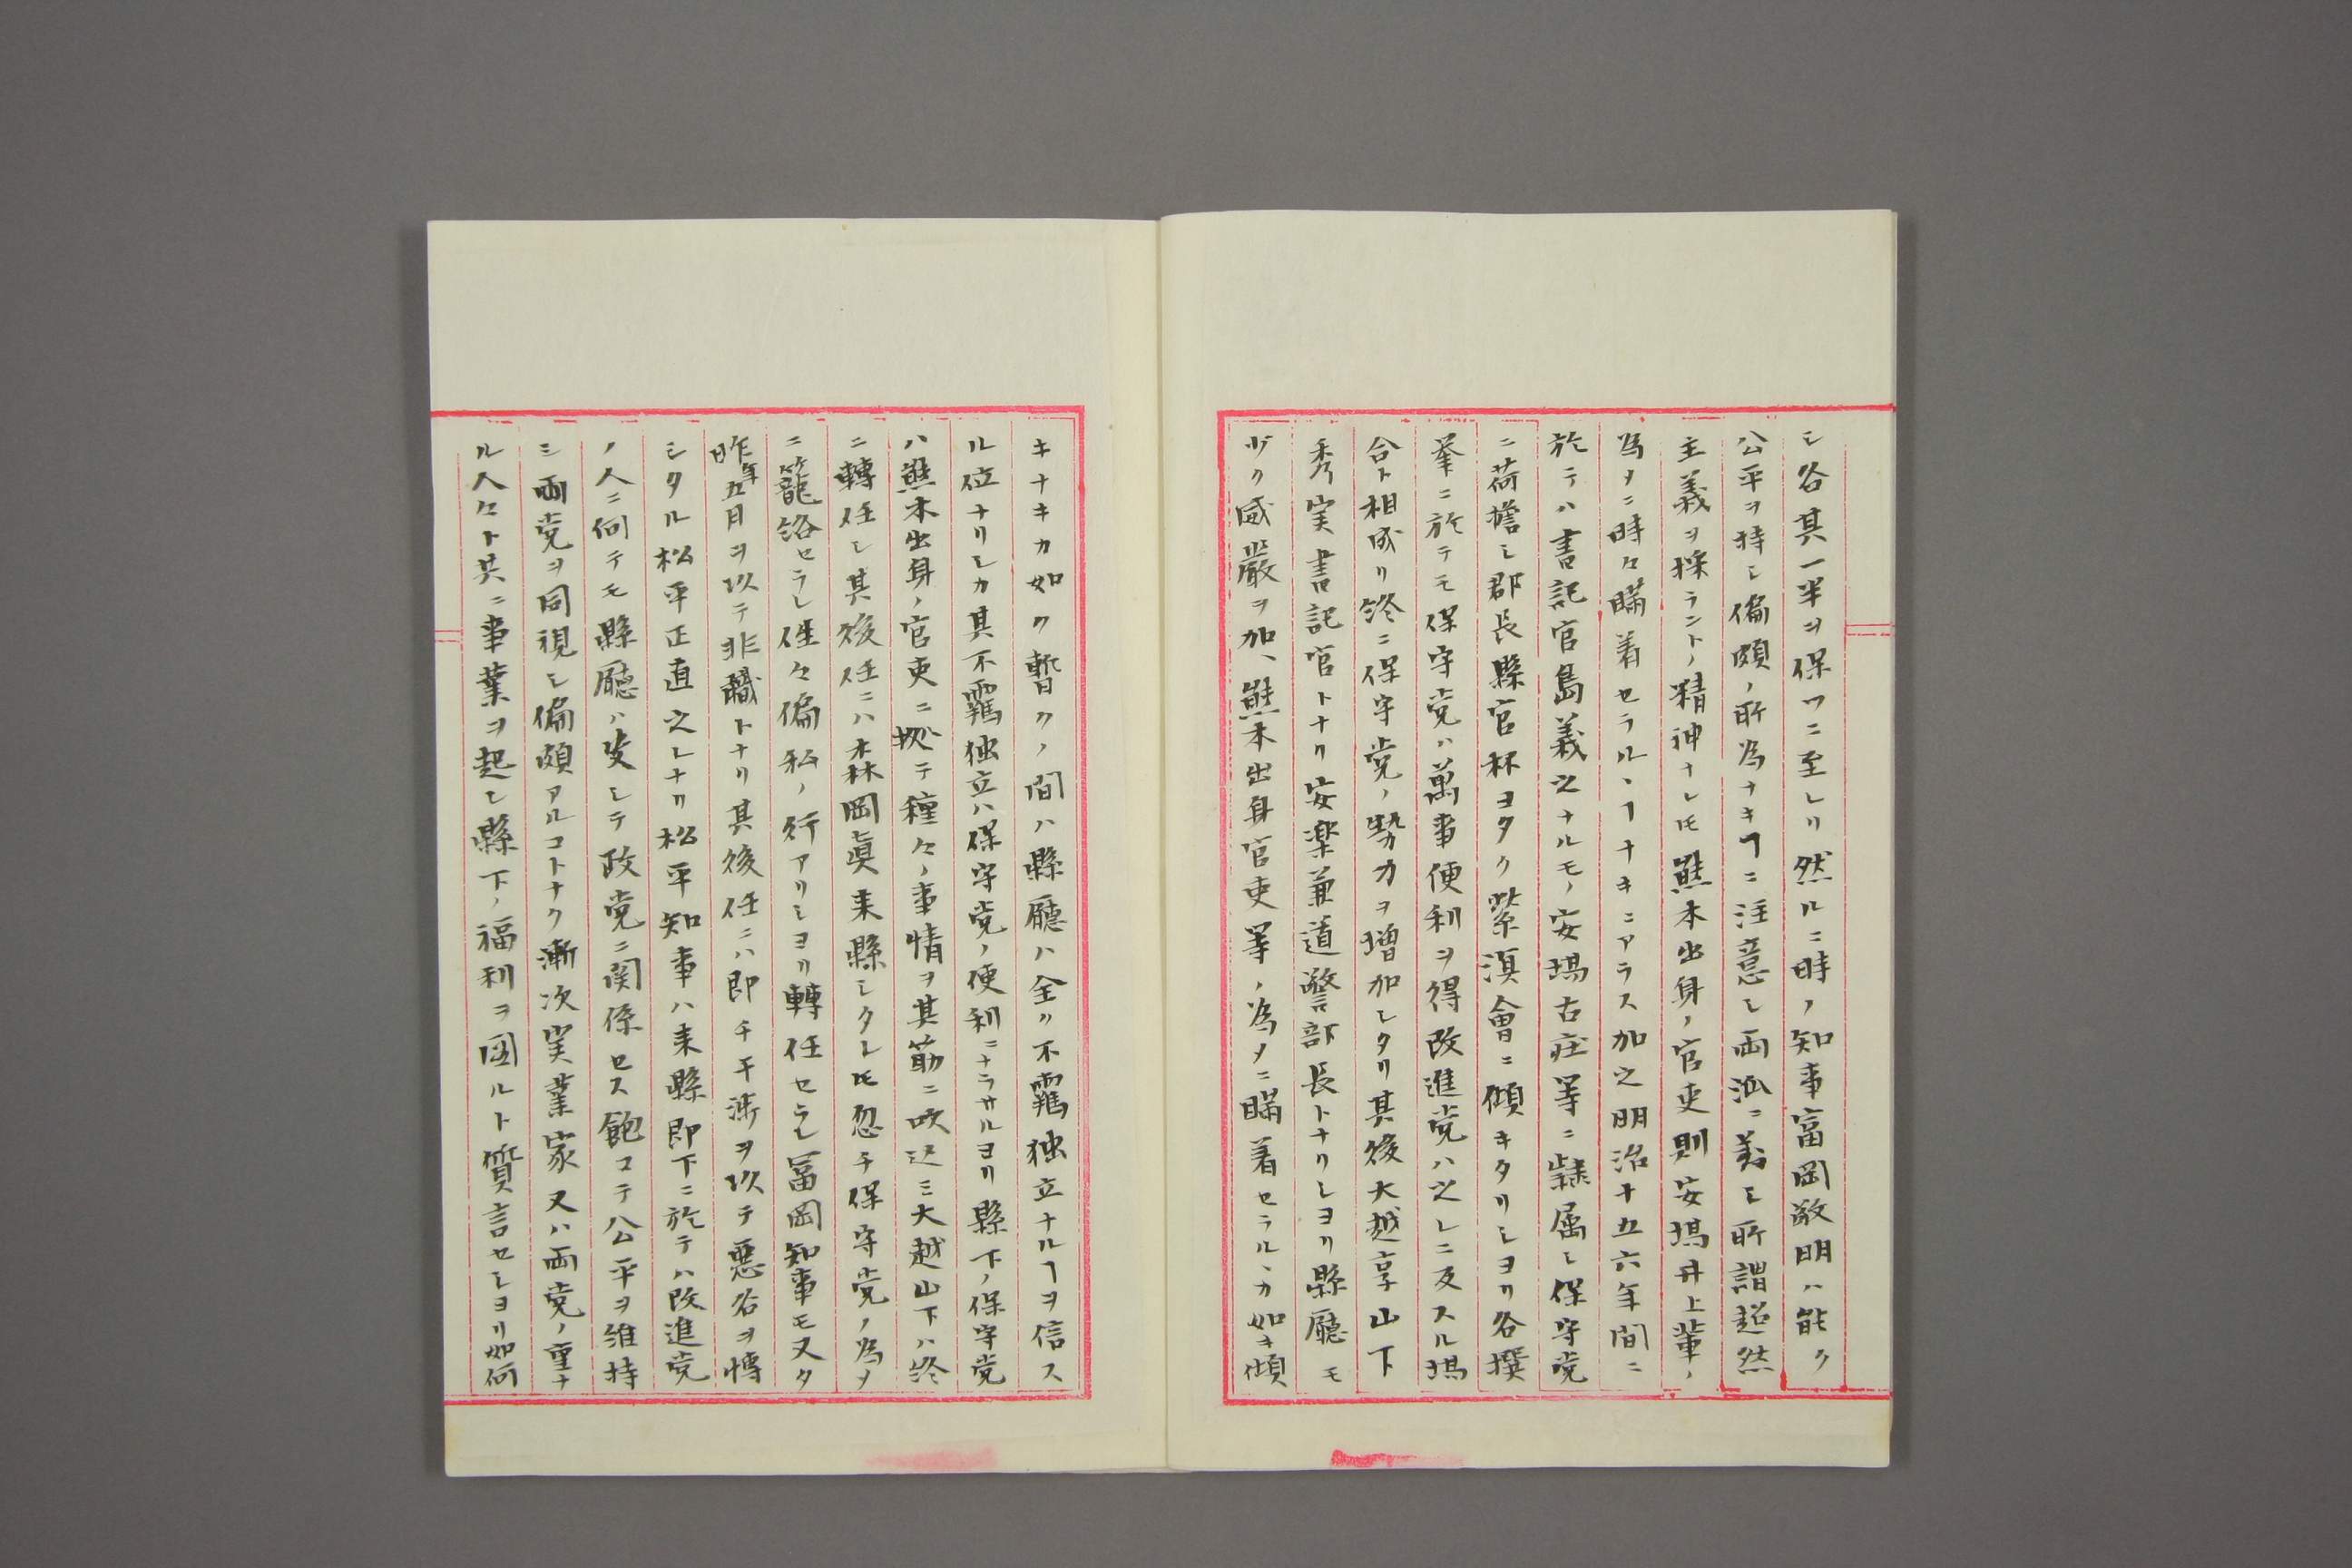 シ各其一半ヲ保ツニ至レリ然ルニ時ノ知事富岡敬明ハ能ク
公平ヲ持シ偏頗ノ所為ナキヿニ注意シ両派ニ対シ所謂超然
主義ヲ採ラントノ精神ナレ𪜈熊本出身ノ官吏則安場井上輩ノ
為メニ時々瞞着セラルヽヿナキニアラス加之明治十五六年間ニ
於テハ書記官島義之ナルモノ安場古荘等ニ隷属シ保守党
ニ荷擔シ郡長縣官杯ヨタク紫溟會ニ傾キタリシヨリ各撰
挙ニ於テモ保守党ハ萬事便利ヲ得改進党ハ之レニ反スル場
合ト相成リ終ニ保守党ノ勢力ヲ増加シタリ其後大越亨山下
秀実書記官トナリ安楽兼道警部長トナリシヨリ縣廳モ
少ク威嚴ヲ加ヽ熊本出身官吏等ノ為メニ瞞着セラルヽカ如キ傾
キナキカ如ク暫クノ間ハ縣廳ハ全ク不羈独立ナルヿヲ信ス
ル位ナリシカ其不羈独立ハ保守党ノ便利ニナラサルヨリ縣下ノ保守党
ハ熊本出身ノ官吏ニ拠テ種々ノ事情ヲ其筋ニ吹込ミ大越山下ハ終
ニ轉任シ其後任ニハ森岡眞来縣シタレ𪜈忽チ保守党ノ為メ
ニ籠絡セラレ往々偏私ノ行アリシヨリ轉任セラレ富岡知事モ又タ
昨年五月ヲ以テ非職トナリ其後任ニハ即チ干渉ヲ以テ悪名ヲ博
シタル松平正直之レナリ松平知事ハ来縣即下ニ於テハ改進党
ノ人ニ向テモ縣廳ハ决シテ政党ニ関係セス飽マテ公平ヲ維持
シ両党ヲ同視シ偏頗アルコトナク漸次実業家又ハ両党ノ重ナ
ル人々ト共ニ事業ヲ起シ縣下ノ福利ヲ図ルト質言セシヨリ如何